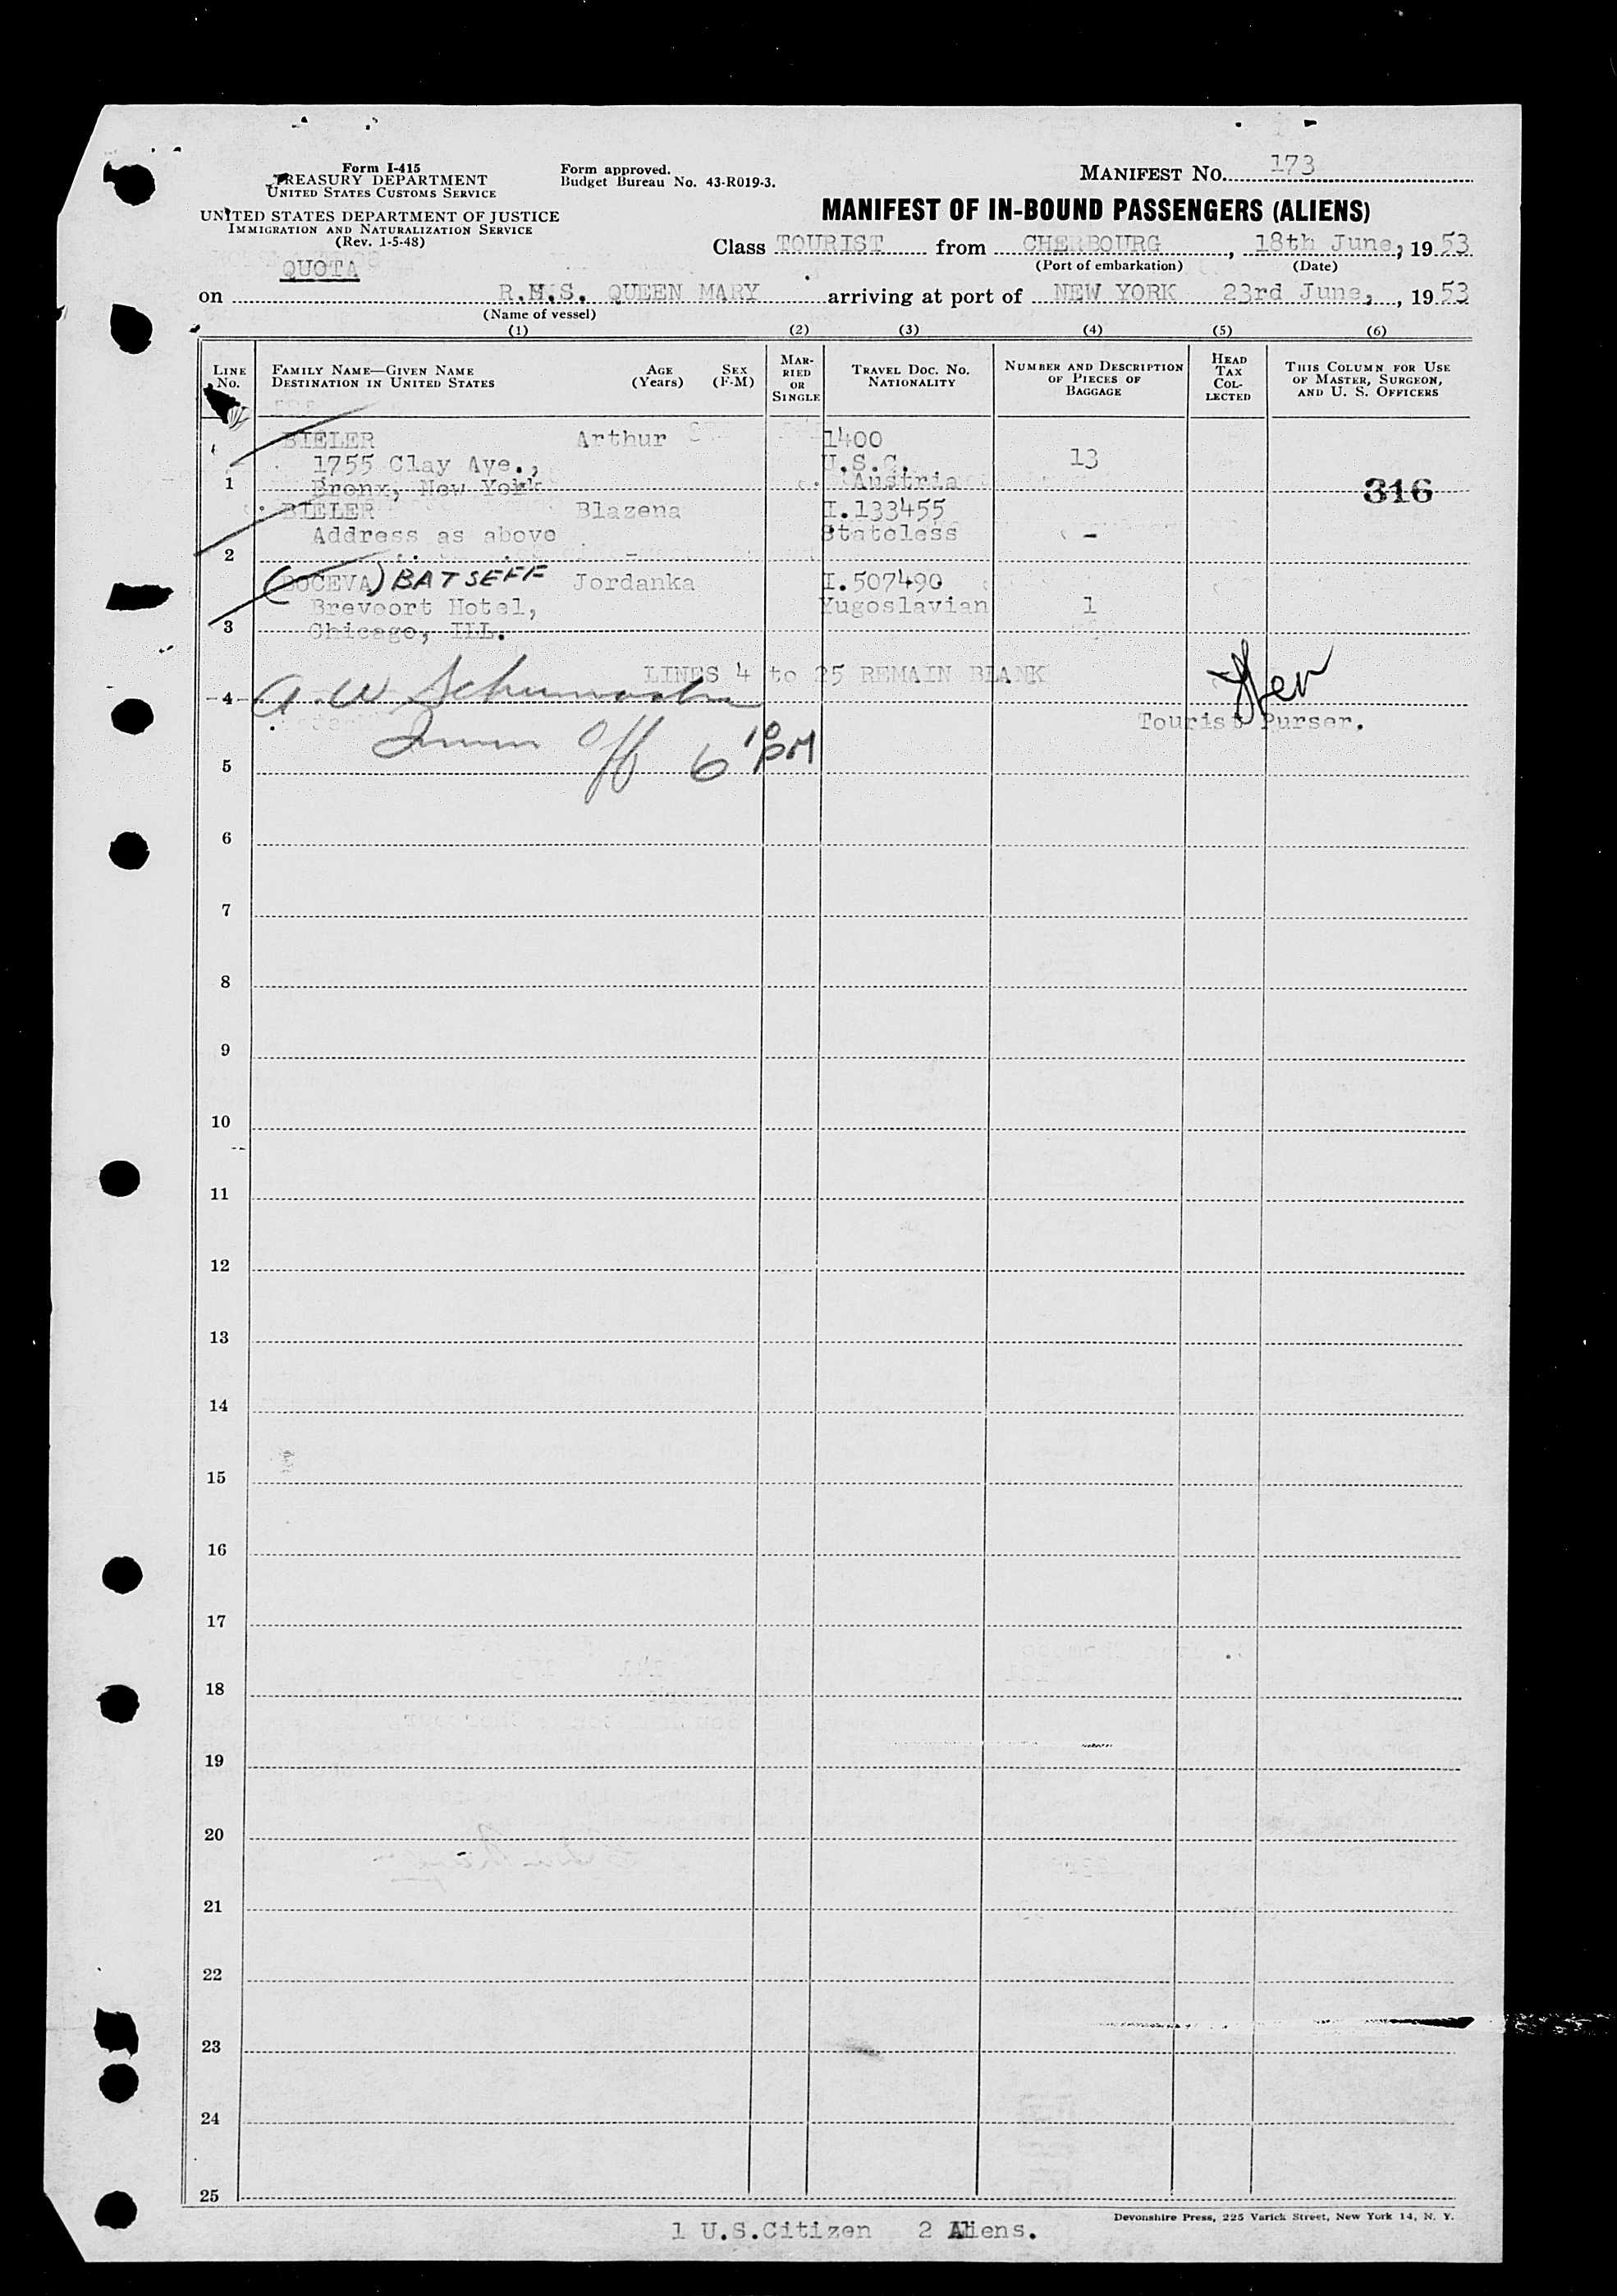 Form I-415
TREASURY DEPARTMENT
UNITED STATES CUSTOMS SERVICE
UNITED STATES DEPARTMENT OF JUSTICE
IMMIGRATION AND NATURALIZATION SERVICE
(Rev. 1-5-48)
QUOTA
Form approved.
Budget Bureau No. 43-R019-3.
MANIFEST No. 173
MANIFEST OF IN-BOUND PASSENGERS (ALIENS)
Class TOURIST from CHERBOURG, 18th June, 1953
(Port of embarkation) (Date)
on R.M.S. QUEEN MARY arriving at port of NEW YORK 23rd June, 1953
(Name of vessel)
(1) (2) (3) (4) (5) (6)
LINE No.
FAMILY NAME—GIVEN NAME
DESTINATION IN UNITED STATES
AGE (Years)
SEX (F-M)
MARRIED OR SINGLE
TRAVEL DOC. NO.
NATIONALITY
NUMBER AND DESCRIPTION OF PIECES OF BAGGAGE
HEAD TAX COLLECTED
THIS COLUMN FOR USE OF MASTER, SURGEON, AND U. S. OFFICERS
BIELER Arthur 1400
1755 Clay Ave., U.S.C. 13
1 Bronx, New York Austria 316
BIELER Blazena I.133455
Address as above Stateless -
2
(DOCEVA) BATSEFF Jordanka I.507490
Brevoort Hotel, Yugoslavian 1
3 Chicago, ILL.
LINES 4 to 25 REMAIN BLANK
4 A. W. Schumacher
Tourist Purser.
Imm Off 6 10 PM
5
6
7
8
9
10
11
12
13
14
15
16
17
18
19
20
21
22
23
24
25
Devonshire Press, 225 Varick Street, New York 14, N. Y.
1 U.S.Citizen 2 Aliens.